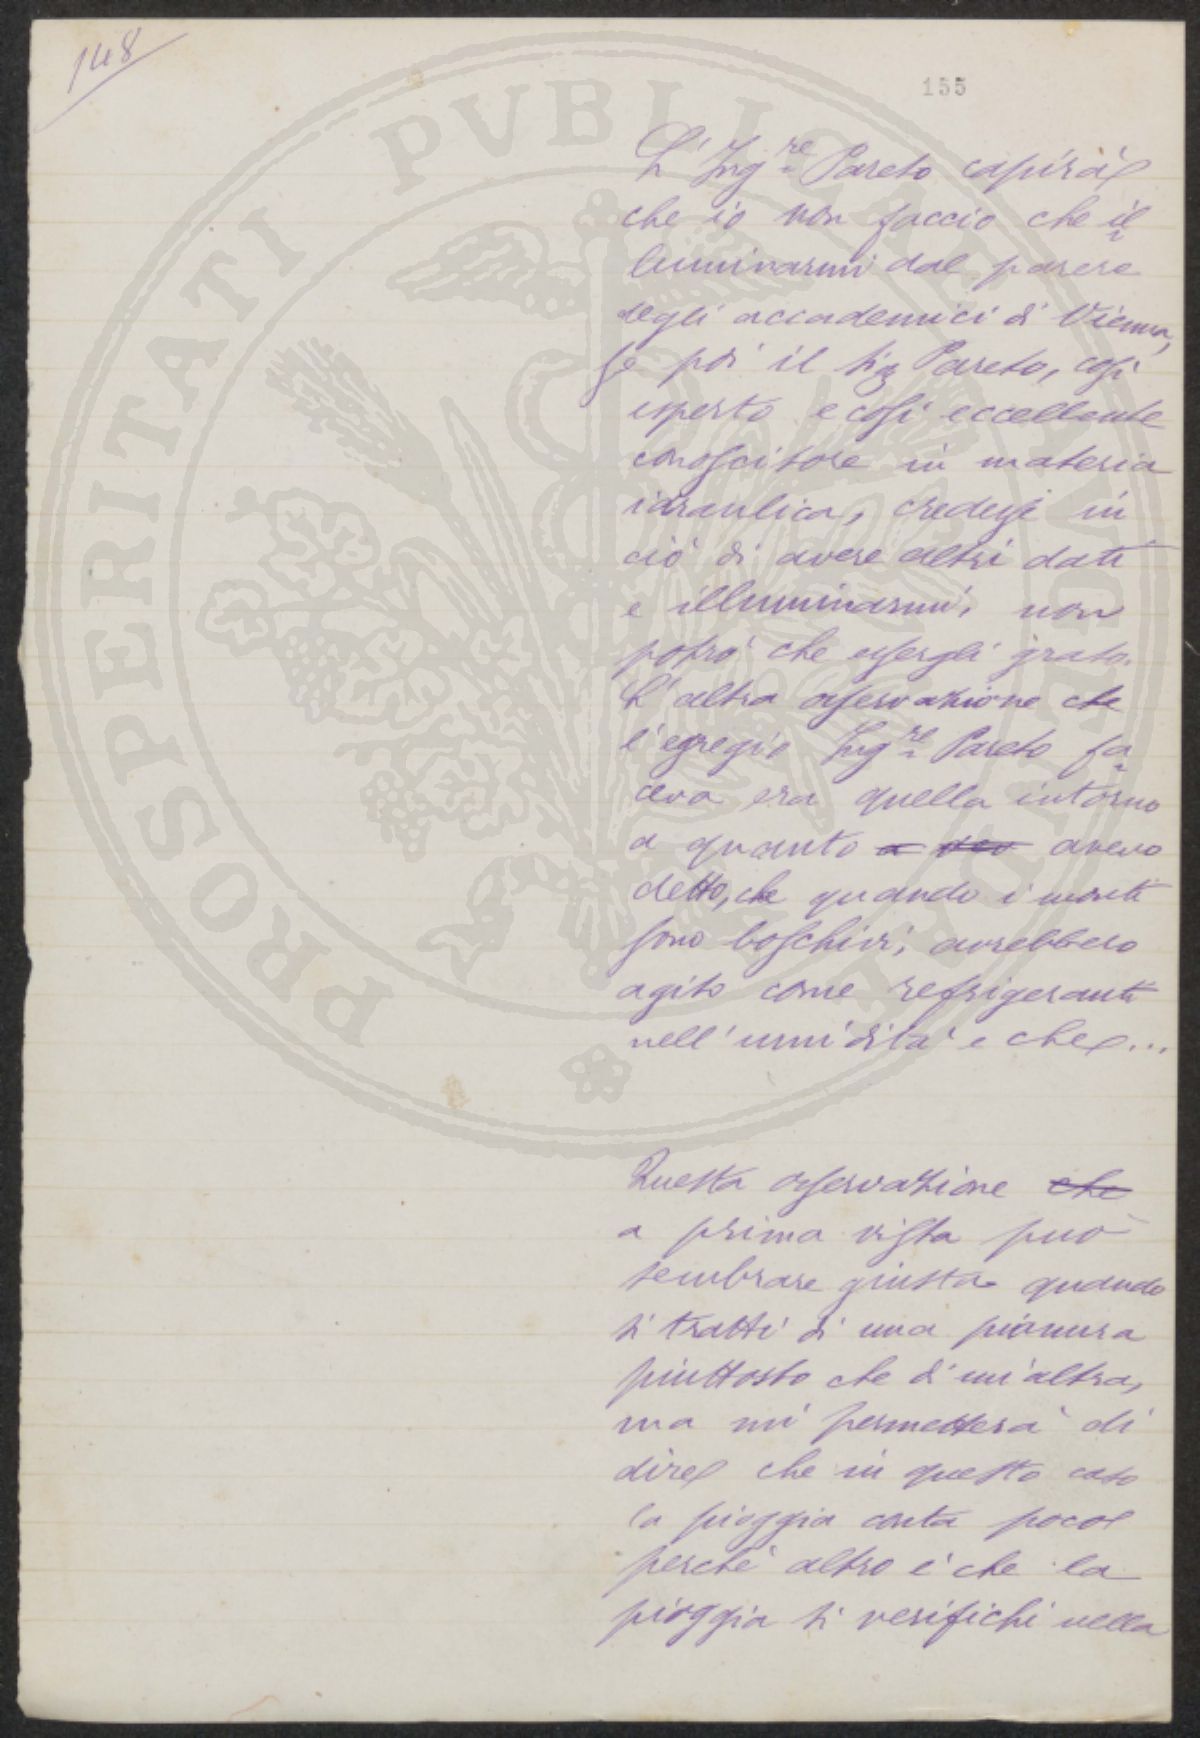 148
155
L'Ing.re Pareto capirà
che io non faccio che il
luminarmi dal parere
degli accademici di Vienna,
Se poi il Sig Pareto, così
esperto e così eccellente
conoscitore in materia
idraulica, credesse in
ciò di avere altri dati
e illuminarmi, non
potrò che essergli grato.
L'altra osservazione che
l'egregio Ing.re Pareto fa
ceva era quella intorno
a quanto a avevo
detto, che quando i monti
sono boschivi, avrebbero
agito come refrigeranti
nell'umidità e che...
Questa osservazione che
a prima vista può
sembrare giusta quando
si tratti di una pianura
piuttosto che di un'altra,
ma mi permetterà di
dire che in questo caso
la pioggia conta poco
perchè altro è che la
pioggia si verifichi nella
PUBLICAE
PROSPERITATI